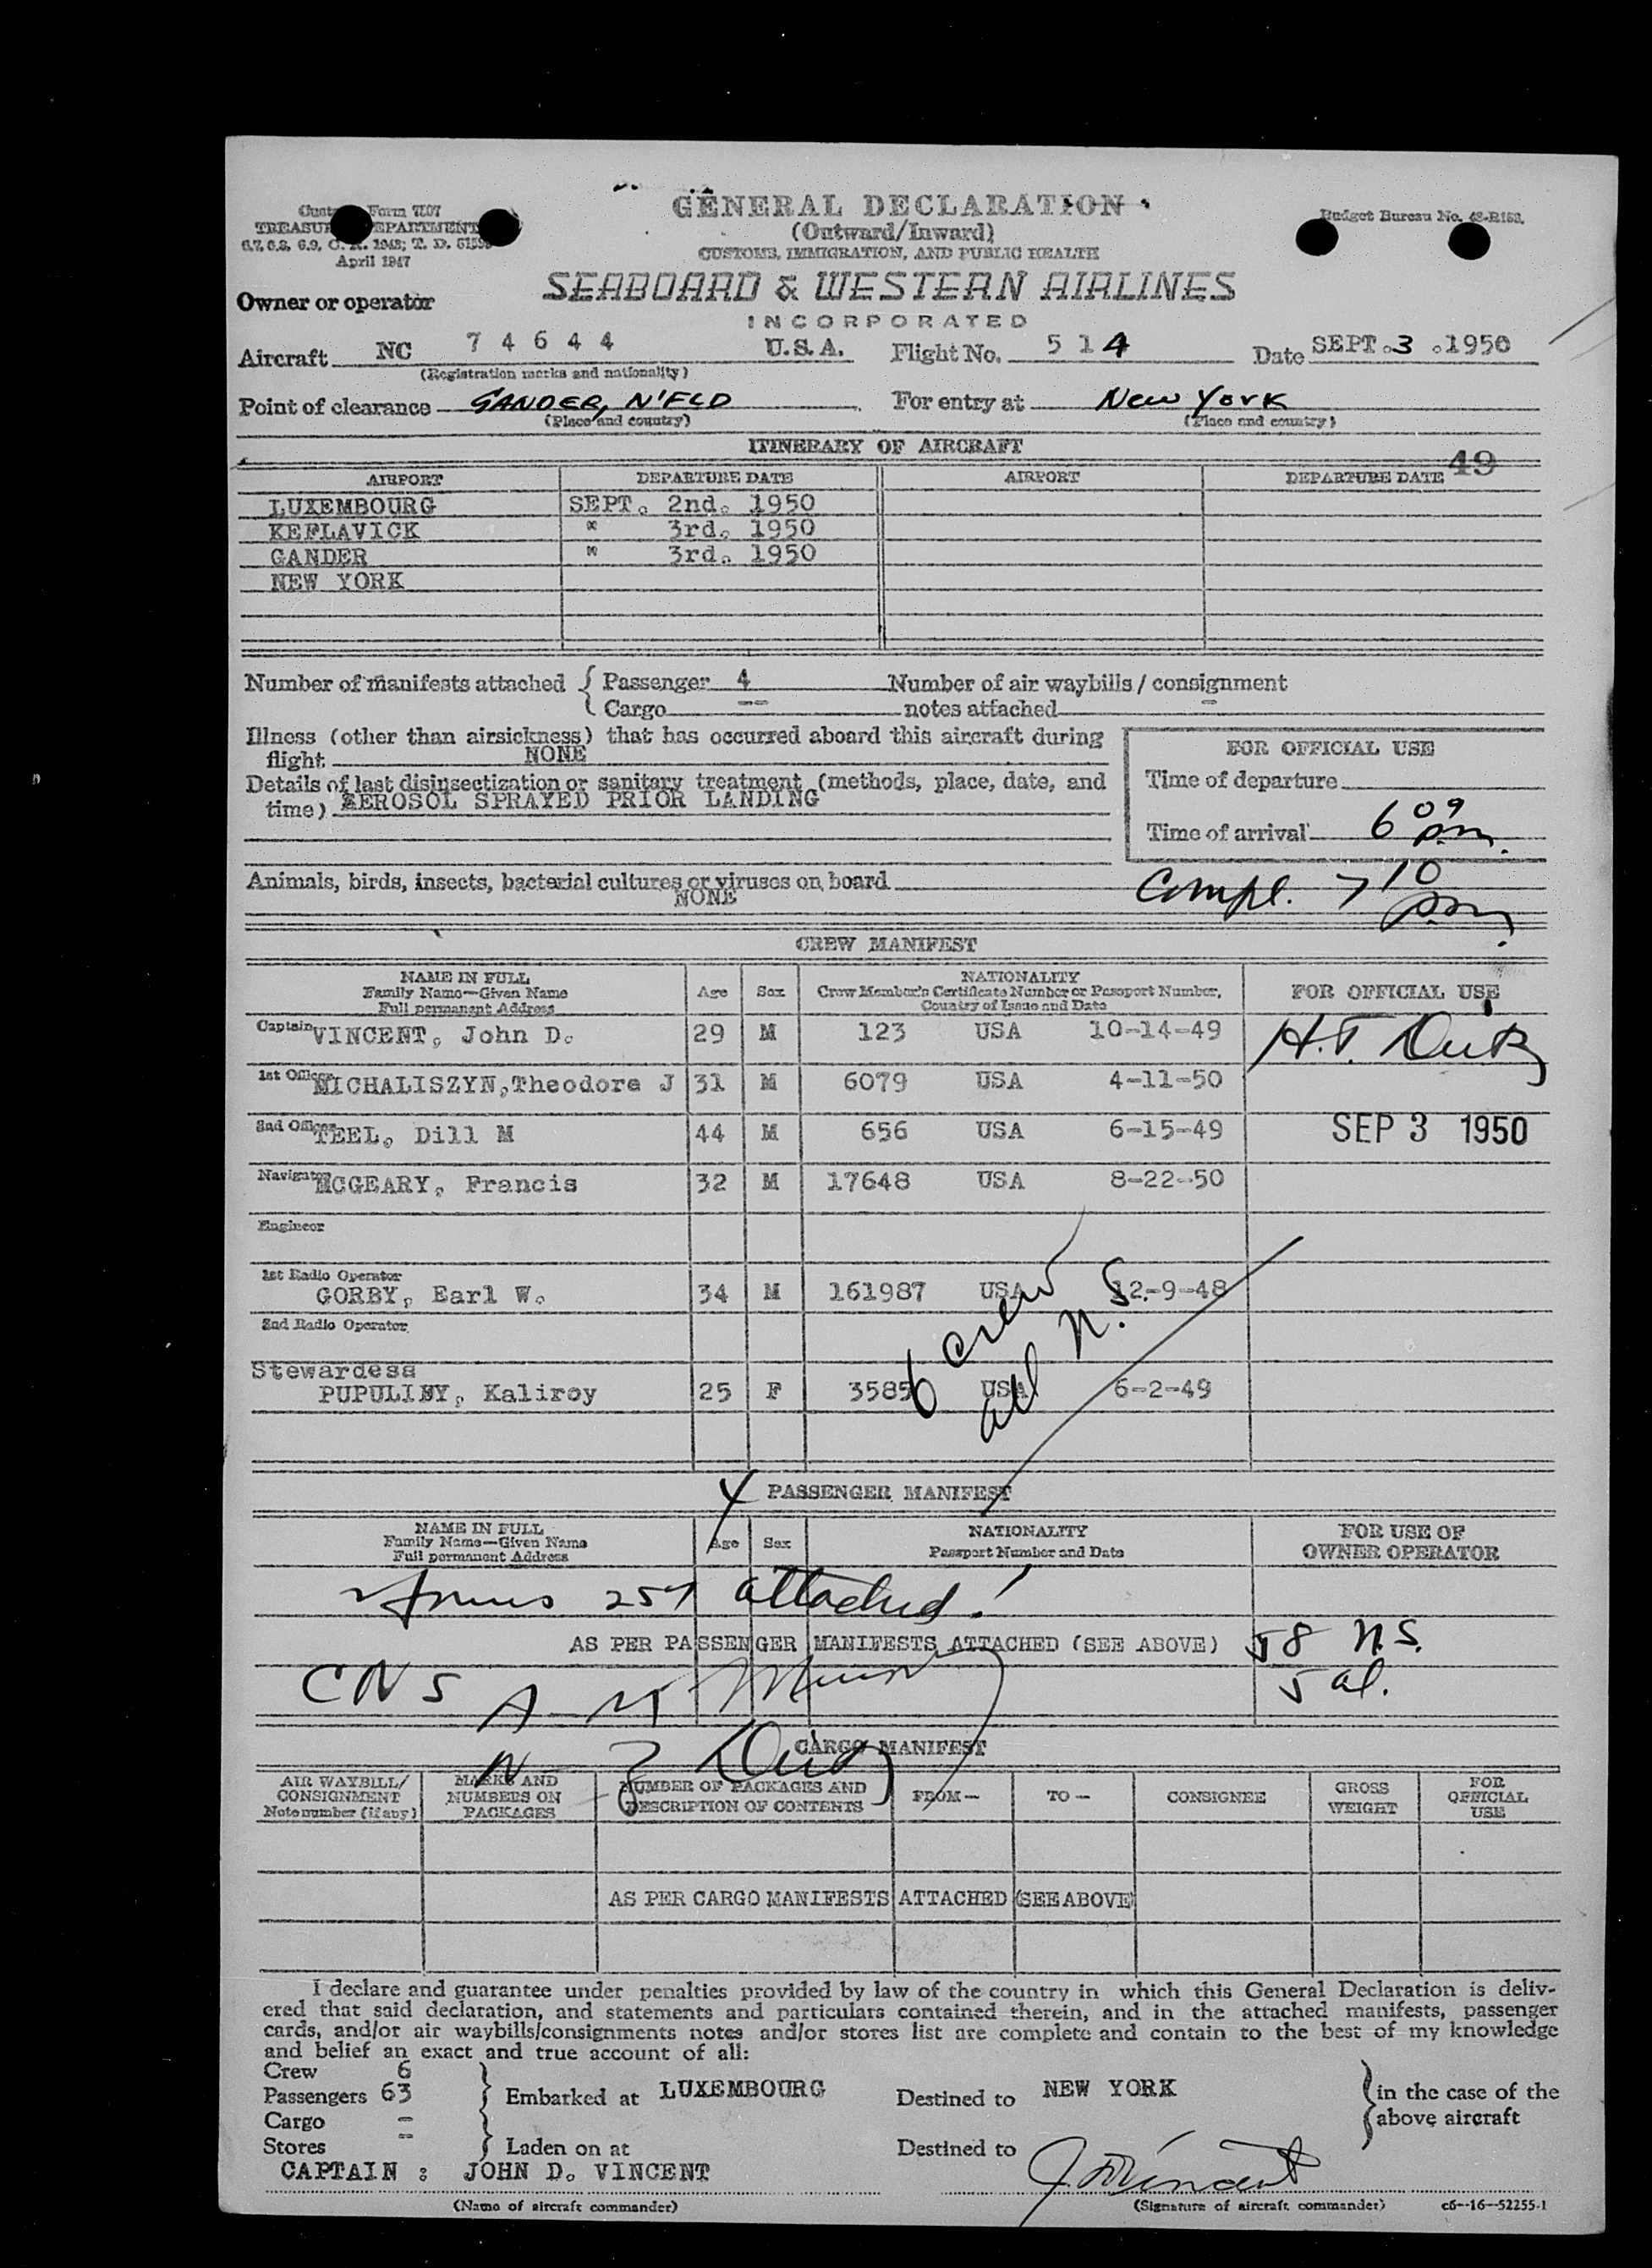 GENERAL DECLARATION
(Outward/Inward)
CUSTOMS, IMMIGRATION, AND PUBLIC HEALTH
Form 7507
TREASURY DEPARTMENT
April 1947
Budget Bureau No.
Owner or operator
SEABOARD & WESTERN AIRLINES
INCORPORATED
Aircraft NC 74644 U.S.A. Flight No. 514 Date SEPT. 3 .1950
(Registration marks and nationality)
Point of clearance GANDER, N'FLD For entry at New York
(Place and country) (Place and country)
ITINERARY OF AIRCRAFT
49
AIRPORT DEPARTURE DATE AIRPORT DEPARTURE DATE
LUXEMBOURG SEPT. 2nd. 1950
KEFLAVICK " 3rd. 1950
GANDER " 3rd. 1950
NEW YORK
Number of manifests attached { Passenger 4 Number of air waybills / consignment
Cargo -- notes attached -
Illness (other than airsickness) that has occurred aboard this aircraft during
flight NONE
Details of last disinsectization or sanitary treatment (methods, place, date, and
time) AEROSOL SPRAYED PRIOR LANDING
FOR OFFICIAL USE
Time of departure
Time of arrival 6 09 pm.
Animals, birds, insects, bacterial cultures or viruses on board
NONE
Compl. 7 10 pm.
CREW MANIFEST
NAME IN FULL Age Sex NATIONALITY FOR OFFICIAL USE
Family Name—Given Name Crew Member's Certificate Number or Passport Number,
Full permanent Address Country of Issue and Date
Captain VINCENT, John D. 29 M 123 USA 10-14-49
1st Officer MICHALISZYN,Theodore J 31 M 6079 USA 4-11-50
2nd Officer TEEL, Dill M 44 M 656 USA 6-15-49 SEP 3 1950
Navigator MCGEARY, Francis 32 M 17648 USA 8-22-50
Engineer
1st Radio Operator
GORBY, Earl W. 34 M 161987 USA 12-9-48
2nd Radio Operator
Stewardess
PUPULINY, Kaliroy 25 F 3585 USA 6-2-49
6 crew
all N.S.
4 PASSENGER MANIFEST
NAME IN FULL Age Sex NATIONALITY FOR USE OF
Family Name—Given Name Passport Number and Date OWNER OPERATOR
Full permanent Address
257 attached!
AS PER PASSENGER MANIFESTS ATTACHED (SEE ABOVE) 58 N.S.
5 al.
CNS
CARGO MANIFEST
AIR WAYBILL/ MARKS AND NUMBER OF PACKAGES AND FROM— TO— CONSIGNEE GROSS FOR
CONSIGNMENT NUMBERS ON DESCRIPTION OF CONTENTS WEIGHT OFFICIAL
Note number (if any) PACKAGES USE
AS PER CARGO MANIFESTS ATTACHED (SEE ABOVE)
I declare and guarantee under penalties provided by law of the country in which this General Declaration is deliv-
ered that said declaration, and statements and particulars contained therein, and in the attached manifests, passenger
cards, and/or air waybills/consignments notes and/or stores list are complete and contain to the best of my knowledge
and belief an exact and true account of all:
Crew 6
Passengers 63 Embarked at LUXEMBOURG Destined to NEW YORK in the case of the
Cargo - above aircraft
Stores -- Laden on at Destined to
CAPTAIN : JOHN D. VINCENT J D Vincent
(Name of aircraft commander) (Signature of aircraft commander) c6—16—52255-1